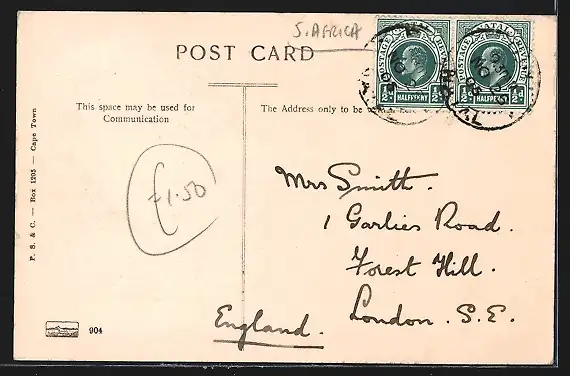 S. AFRICA
POST CARD
NATAL
POSTAGE REVENUE
½d HALFPENNY ½d
NATAL
POSTAGE REVENUE
½d HALFPENNY ½d
This space may be used for
Communication
The Address only to be
P. S. & C. — Box 1205 — Cape Town
£1.50
Mrs Smith.
1 Garlies Road.
Forest Hill.
London. S. E.
England.
904